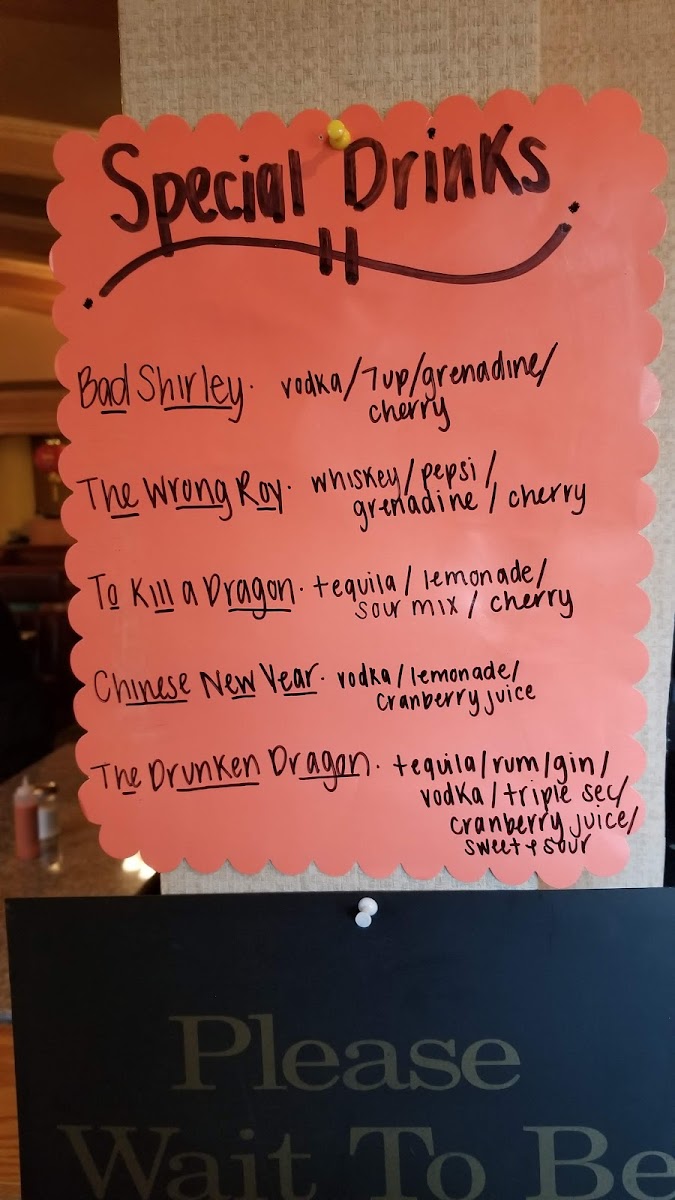 Special Drinks
Bad Shirley. vodka/7up/grenadine/
cherry
The Wrong Roy. whiskey/pepsi/
grenadine/cherry
To Kill a Dragon. tequila/lemonade/
sour mix/cherry
Chinese New Year. vodka/lemonade/
cranberry juice
The Drunken Dragon. tequila/rum/gin/
vodka/triple sec/
cranberry juice/
sweet + sour
Please
Wait To Be